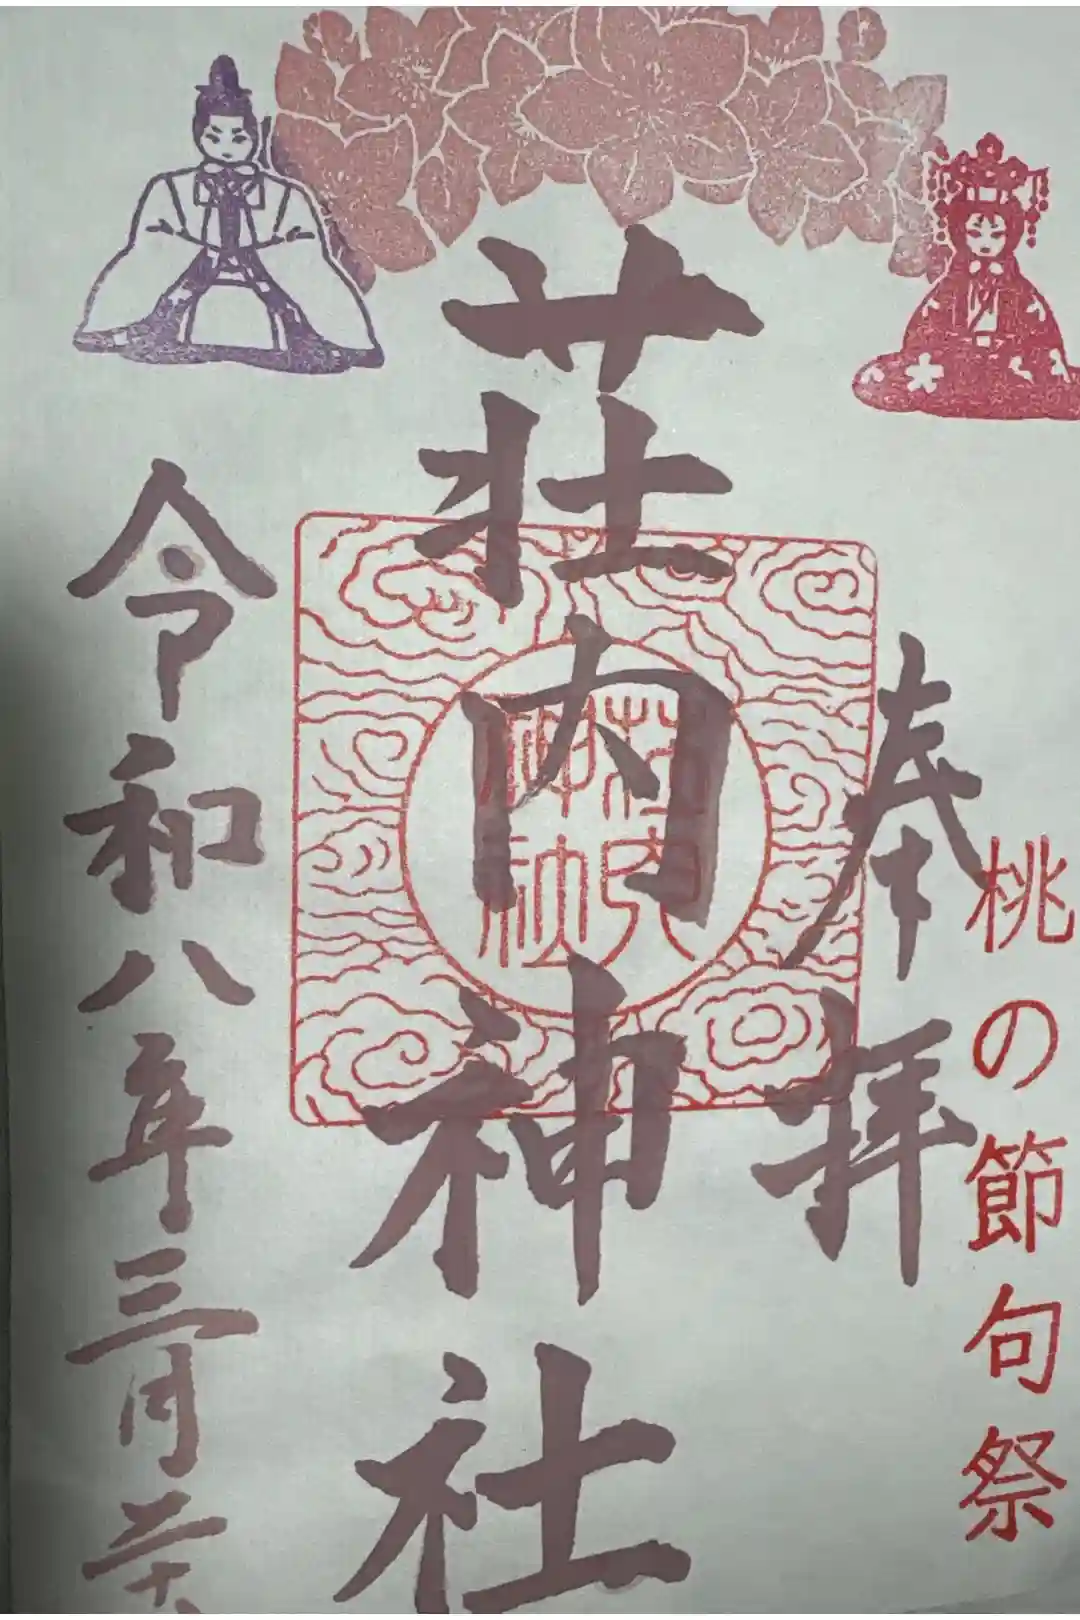 桃の節句祭
奉拝
荘内神社
荘内
神社
令和八年三月二十